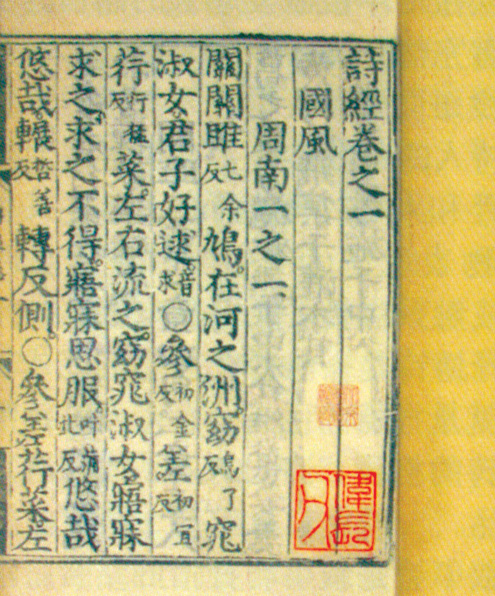 詩經卷之一
國風
周南一之一
關關雎七余反鳩。在河之洲。窈烏了反窕
淑女。君子好逑音求○參初金反差初宜反
荇行猛反菜。左右流之。窈窕淑女。寤寐
求之。求之不得。寤寐思服。叶蒲北反悠哉
悠哉。輾哲善反轉反側。○參差荇菜。左